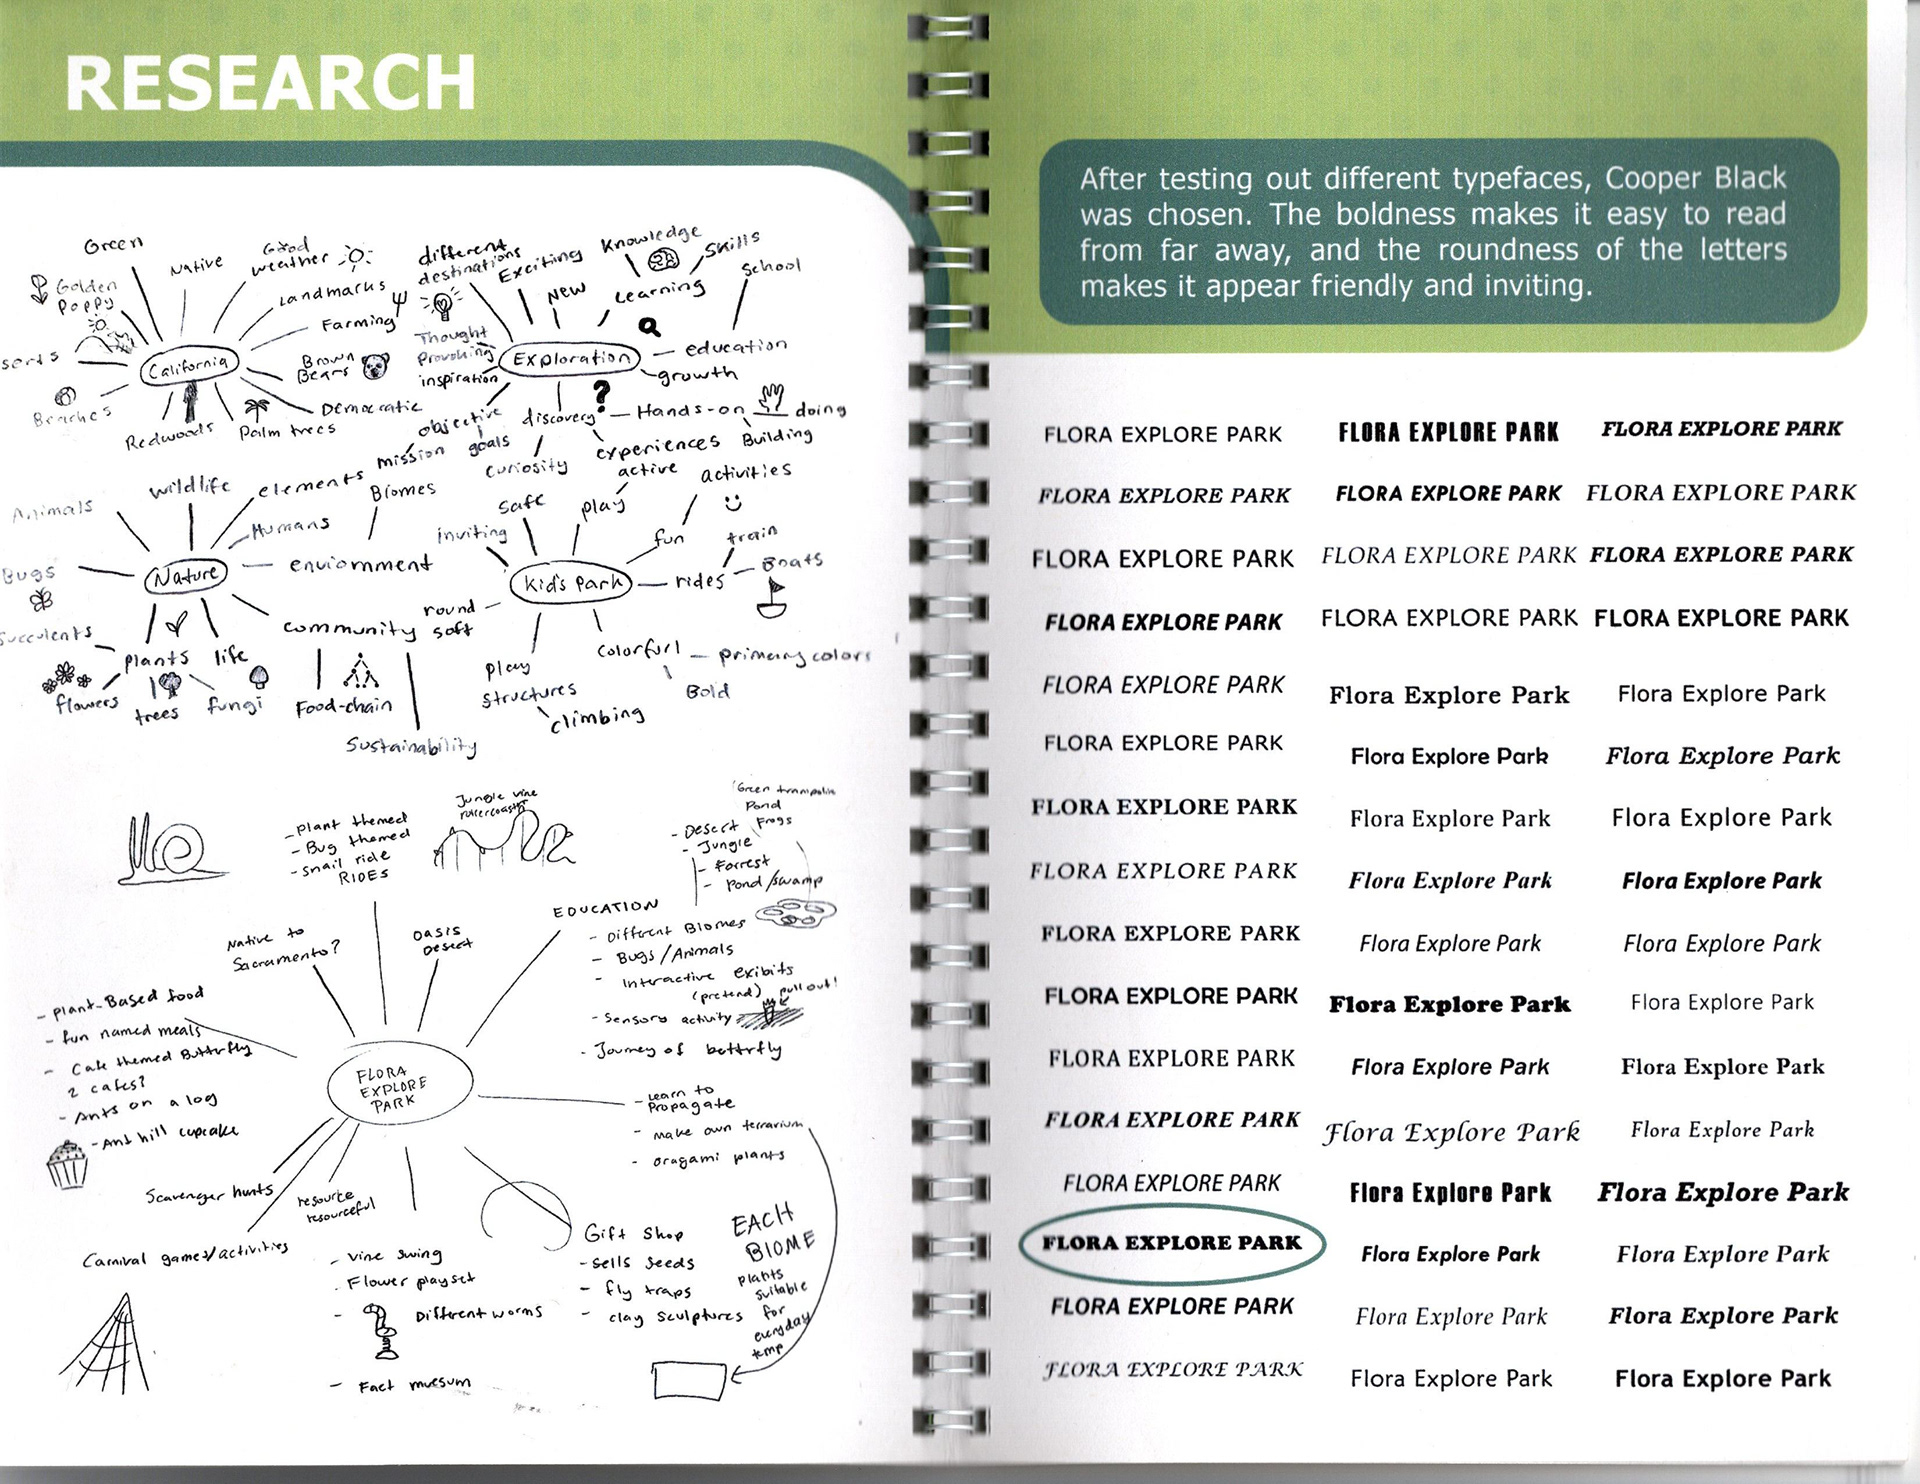 RESEARCH
Green
Native
Good
weather
Golden
Poppy
Landmarks
Farming
serts
California
Brown
Bears
Beaches
Redwoods
Palm trees
Democratic
different
destinations
Exciting
Knowledge
Skills
School
New
Learning
Thought
Provoking
inspiration
Exploration
education
growth
objective
mission
goals
discovery
?
Hands-on
doing
Building
experiences
curiosity
Animals
wildlife
elements
Humans
Biomes
Bugs
Nature
enviornment
succulents
plants
life
community
flowers
trees
fungi
Food-chain
Sustainability
safe
play
active
activities
inviting
fun
train
Kid's Park
rides
Boats
round
soft
play
structures
climbing
colorfurl
primary colors
Bold
- Plant themed
- Bug themed
- snail ride
RIDES
Jungle vine
rollercoaster
Green trampolin
Pond
Frogs
- Desert
- Jungle
- Forrest
- Pond/swamp
EDUCATION
- Different Biomes
- Bugs/Animals
- Interactive exibits
(pretend)
pull out!
- Sensory activity
- Journey of buttrfly
Native to
Sacramento?
OASIS
Desert
- Plant-Based food
- fun named meals
- Cafe themed Butterfly
2 cafes?
- Ants on a log
- Ant hill cupcake
FLORA
EXPLORE
PARK
- Learn to
Propagate
- make own terrarium
- oragami plants
Scavenger hunts
resource
resourceful
Carnival games/activities
- Vine swing
- Flower playset
- Different worms
- Fact muesum
Gift Shop
- Sells Seeds
- fly traps
- clay sculptures
EACH
BIOME
plants
suitable
for
everyday
temp
After testing out different typefaces, Cooper Black
was chosen. The boldness makes it easy to read
from far away, and the roundness of the letters
makes it appear friendly and inviting.
FLORA EXPLORE PARK FLORA EXPLORE PARK FLORA EXPLORE PARK
FLORA EXPLORE PARK FLORA EXPLORE PARK FLORA EXPLORE PARK
FLORA EXPLORE PARK FLORA EXPLORE PARK FLORA EXPLORE PARK
FLORA EXPLORE PARK FLORA EXPLORE PARK FLORA EXPLORE PARK
FLORA EXPLORE PARK Flora Explore Park Flora Explore Park
FLORA EXPLORE PARK Flora Explore Park Flora Explore Park
FLORA EXPLORE PARK Flora Explore Park Flora Explore Park
FLORA EXPLORE PARK Flora Explore Park Flora Explore Park
FLORA EXPLORE PARK Flora Explore Park Flora Explore Park
FLORA EXPLORE PARK Flora Explore Park Flora Explore Park
FLORA EXPLORE PARK Flora Explore Park Flora Explore Park
FLORA EXPLORE PARK Flora Explore Park Flora Explore Park
FLORA EXPLORE PARK Flora Explore Park Flora Explore Park
FLORA EXPLORE PARK Flora Explore Park Flora Explore Park
FLORA EXPLORE PARK Flora Explore Park Flora Explore Park
FLORA EXPLORE PARK Flora Explore Park Flora Explore Park